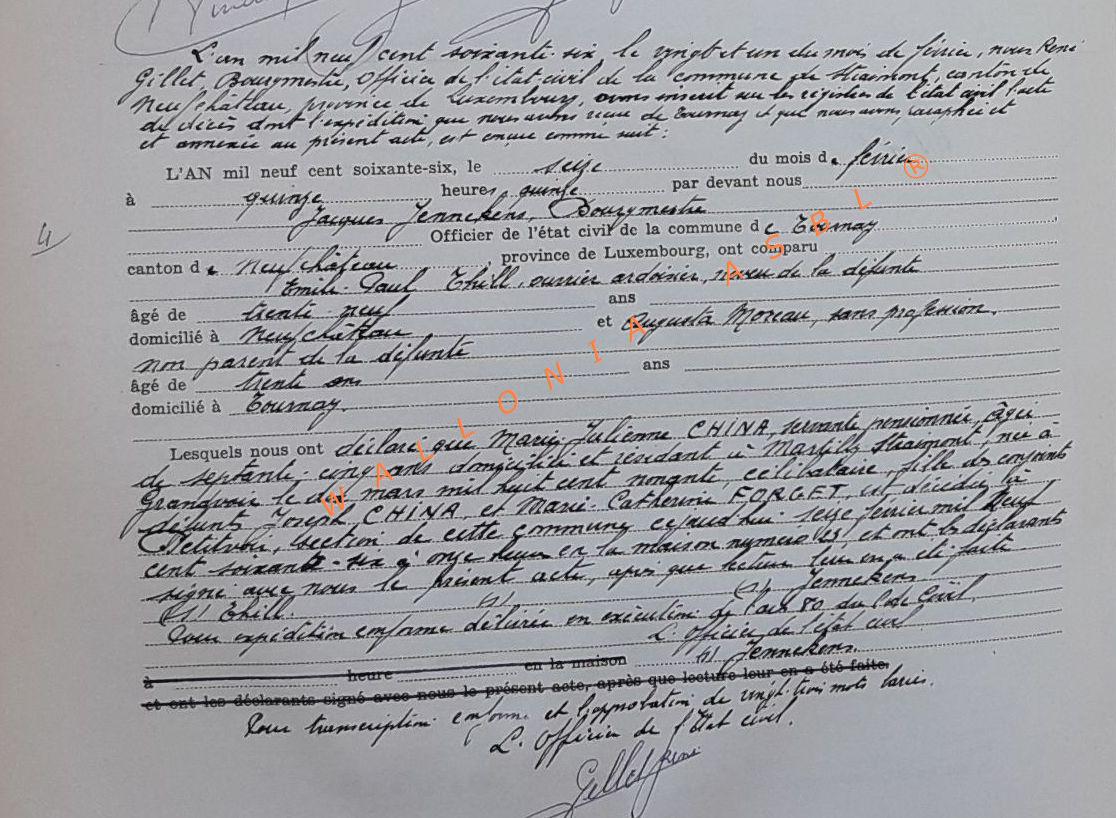 L'an mil neuf cent soixante-six le vingt et un du mois de février, nous René
Gillet, Bourgmestre, Officier de l'état civil de la commune de Straimont, canton de
Neufchâteau, province de Luxembourg, avons inscrit sur les registres de l'état civil l'acte
de décès dont l'expédition que nous avons reçue de Tournay et que nous avons paraphée et
et annexée au présent acte, est conçue comme suit :
L'AN mil neuf cent soixante-six, le seize du mois de février
à quinze heures quinze par devant nous
Jacques Jennekens, Bourgmestre
4 Officier de l'état civil de la commune de Tournay
canton de Neufchâteau, province de Luxembourg, ont comparu
Emile-Paul Thill, ouvrier ardoisier, neveu de la défunte
âgé de trente neuf ans
domicilié à Neufchâteau et Augusta Moreau, sans profession.
non parent de la défunte
âgé de trente ans ans
domicilié à Tournay.
Lesquels nous ont déclaré que Marie Julienne CHINA, servante pensionnée, âgée
de septante-cinq ans domiciliée et résidant à Martilly Straimont, née à
Grandvoir le mars mil huit cent nonante, célibataire, fille des conjoints
défunts Joseph CHINA, et Marie-Catherine FORGET, est décédée à
Petitvoir, section de cette commune, cejourd'hui seize février mil neuf
cent soixante-six à onze heures en la maison numéro et ont les déclarants
signé avec nous le présent acte, après que lecture leur en a été faite
(s) Thill. (s) (s) Jennekens
Pour expédition conforme délivrée en exécution de l'art 80 du Code Civil.
L'Officier de l'état civil
(s) Jennekens.
à heure en la maison
et ont les déclarants signé avec nous le présent acte, après que lecture leur en a été faite.
Pour transcription conforme et l'approbation de vingt-trois mots barrés.
L'Officier de l'État civil.
Gillet René
WALLONIA ASBL ®